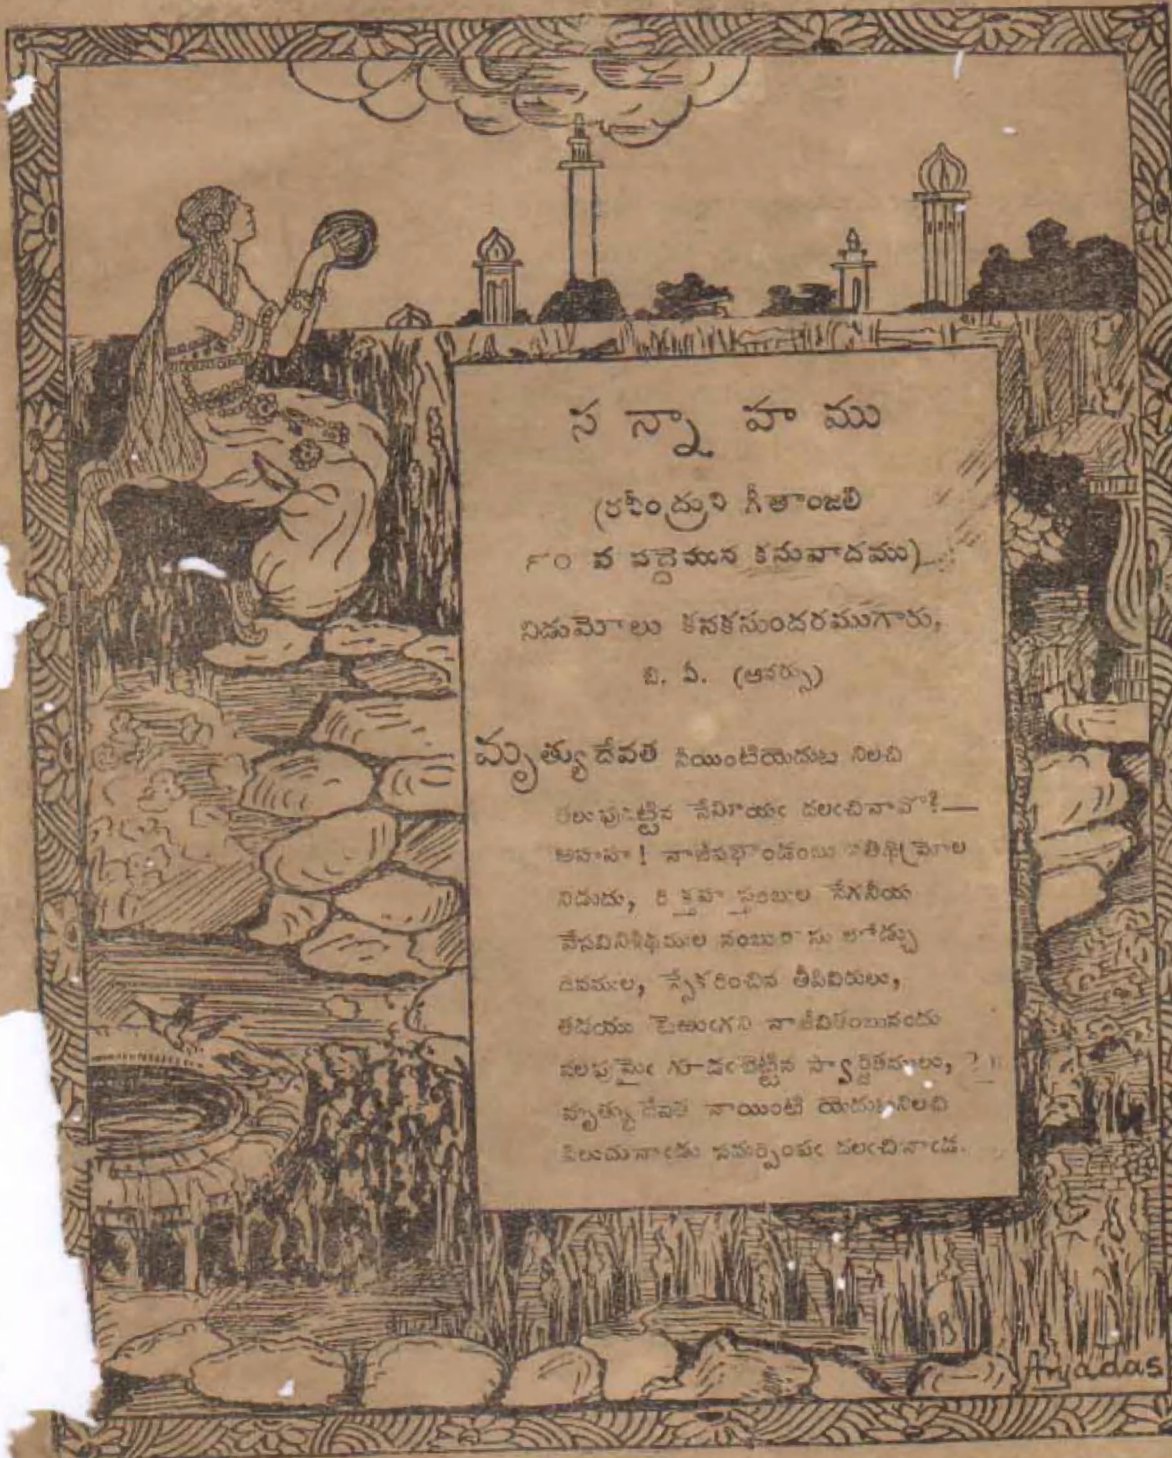 సన్నాహము
(రవీంద్రుని గీతాంజలి
౯౦ వ పద్దెమున కనువాదము)
నిడుమోలు కనకసుందరముగారు,
బి. ఏ. (ఆనర్సు)
మృత్యుదేవత నీయింటియెదుట నిలచి
దలఁచినావొ?—
అహహ! నాజీవభాండంబు నతిథిమ్రోల
నిడుదు, రిక్తహస్తంబుల నేగనీయ
వేసవినిశీథముల
దివముల, స్వీకరించిన తీపివిరులు,
నాజీవితంబునందు
గూడఁబెట్టిన స్వార్జితములు,
మృత్యుదేవత నాయింటి యెదుటనిలచి
పిలుచునాఁడు సమర్పింపఁ దలఁచినాఁడ.
Aryadas